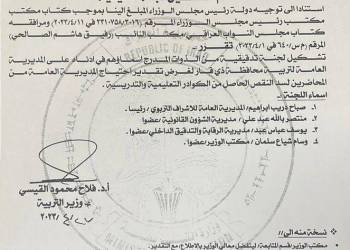 استنادا الى توجيه دولة رئيس مجلس الوزراء المبلغ الينا بموجب كتاب مكتب
رئيس مجلس الوزراء المرقم
مكتب مجلس النواب العراقي/ مكتب النائب (رفيق هاشم الصالحي)
تقـــرر
تشكيل لجنة تدقيقية من الذوات المدرج اسماؤهم في ادناه على المديرية
العامة لتربية محافظة ذي قار لغرض تقدير احتياج المديرية العامة من
المحاضرين لسد النقص الحاصل من الكوادر التعليمية والتدريسية .
اسماء اللجنة :
1. صباح غريب ابراهيم/ المديرية العامة للاشراف التربوي/ رئيسا.
2. منتصر بالله عبد علي/ مديرية الشؤون القانونية/عضوا
3. يوسف عباس عبد/ مديرية الرقابة والتدقيق الداخلي/عضوا.
4. وسام شياع سلمان/ مكتب الوزير/عضوا.
أ.د. فلاح محمود القيسي
وزير التربية
٢٠٢٣/٤/
نسخة منه الى//
مكتب الوزير/قسم المتابعة/ لتفضل معالي الوزير بالاطلاع/ مع التقدير.